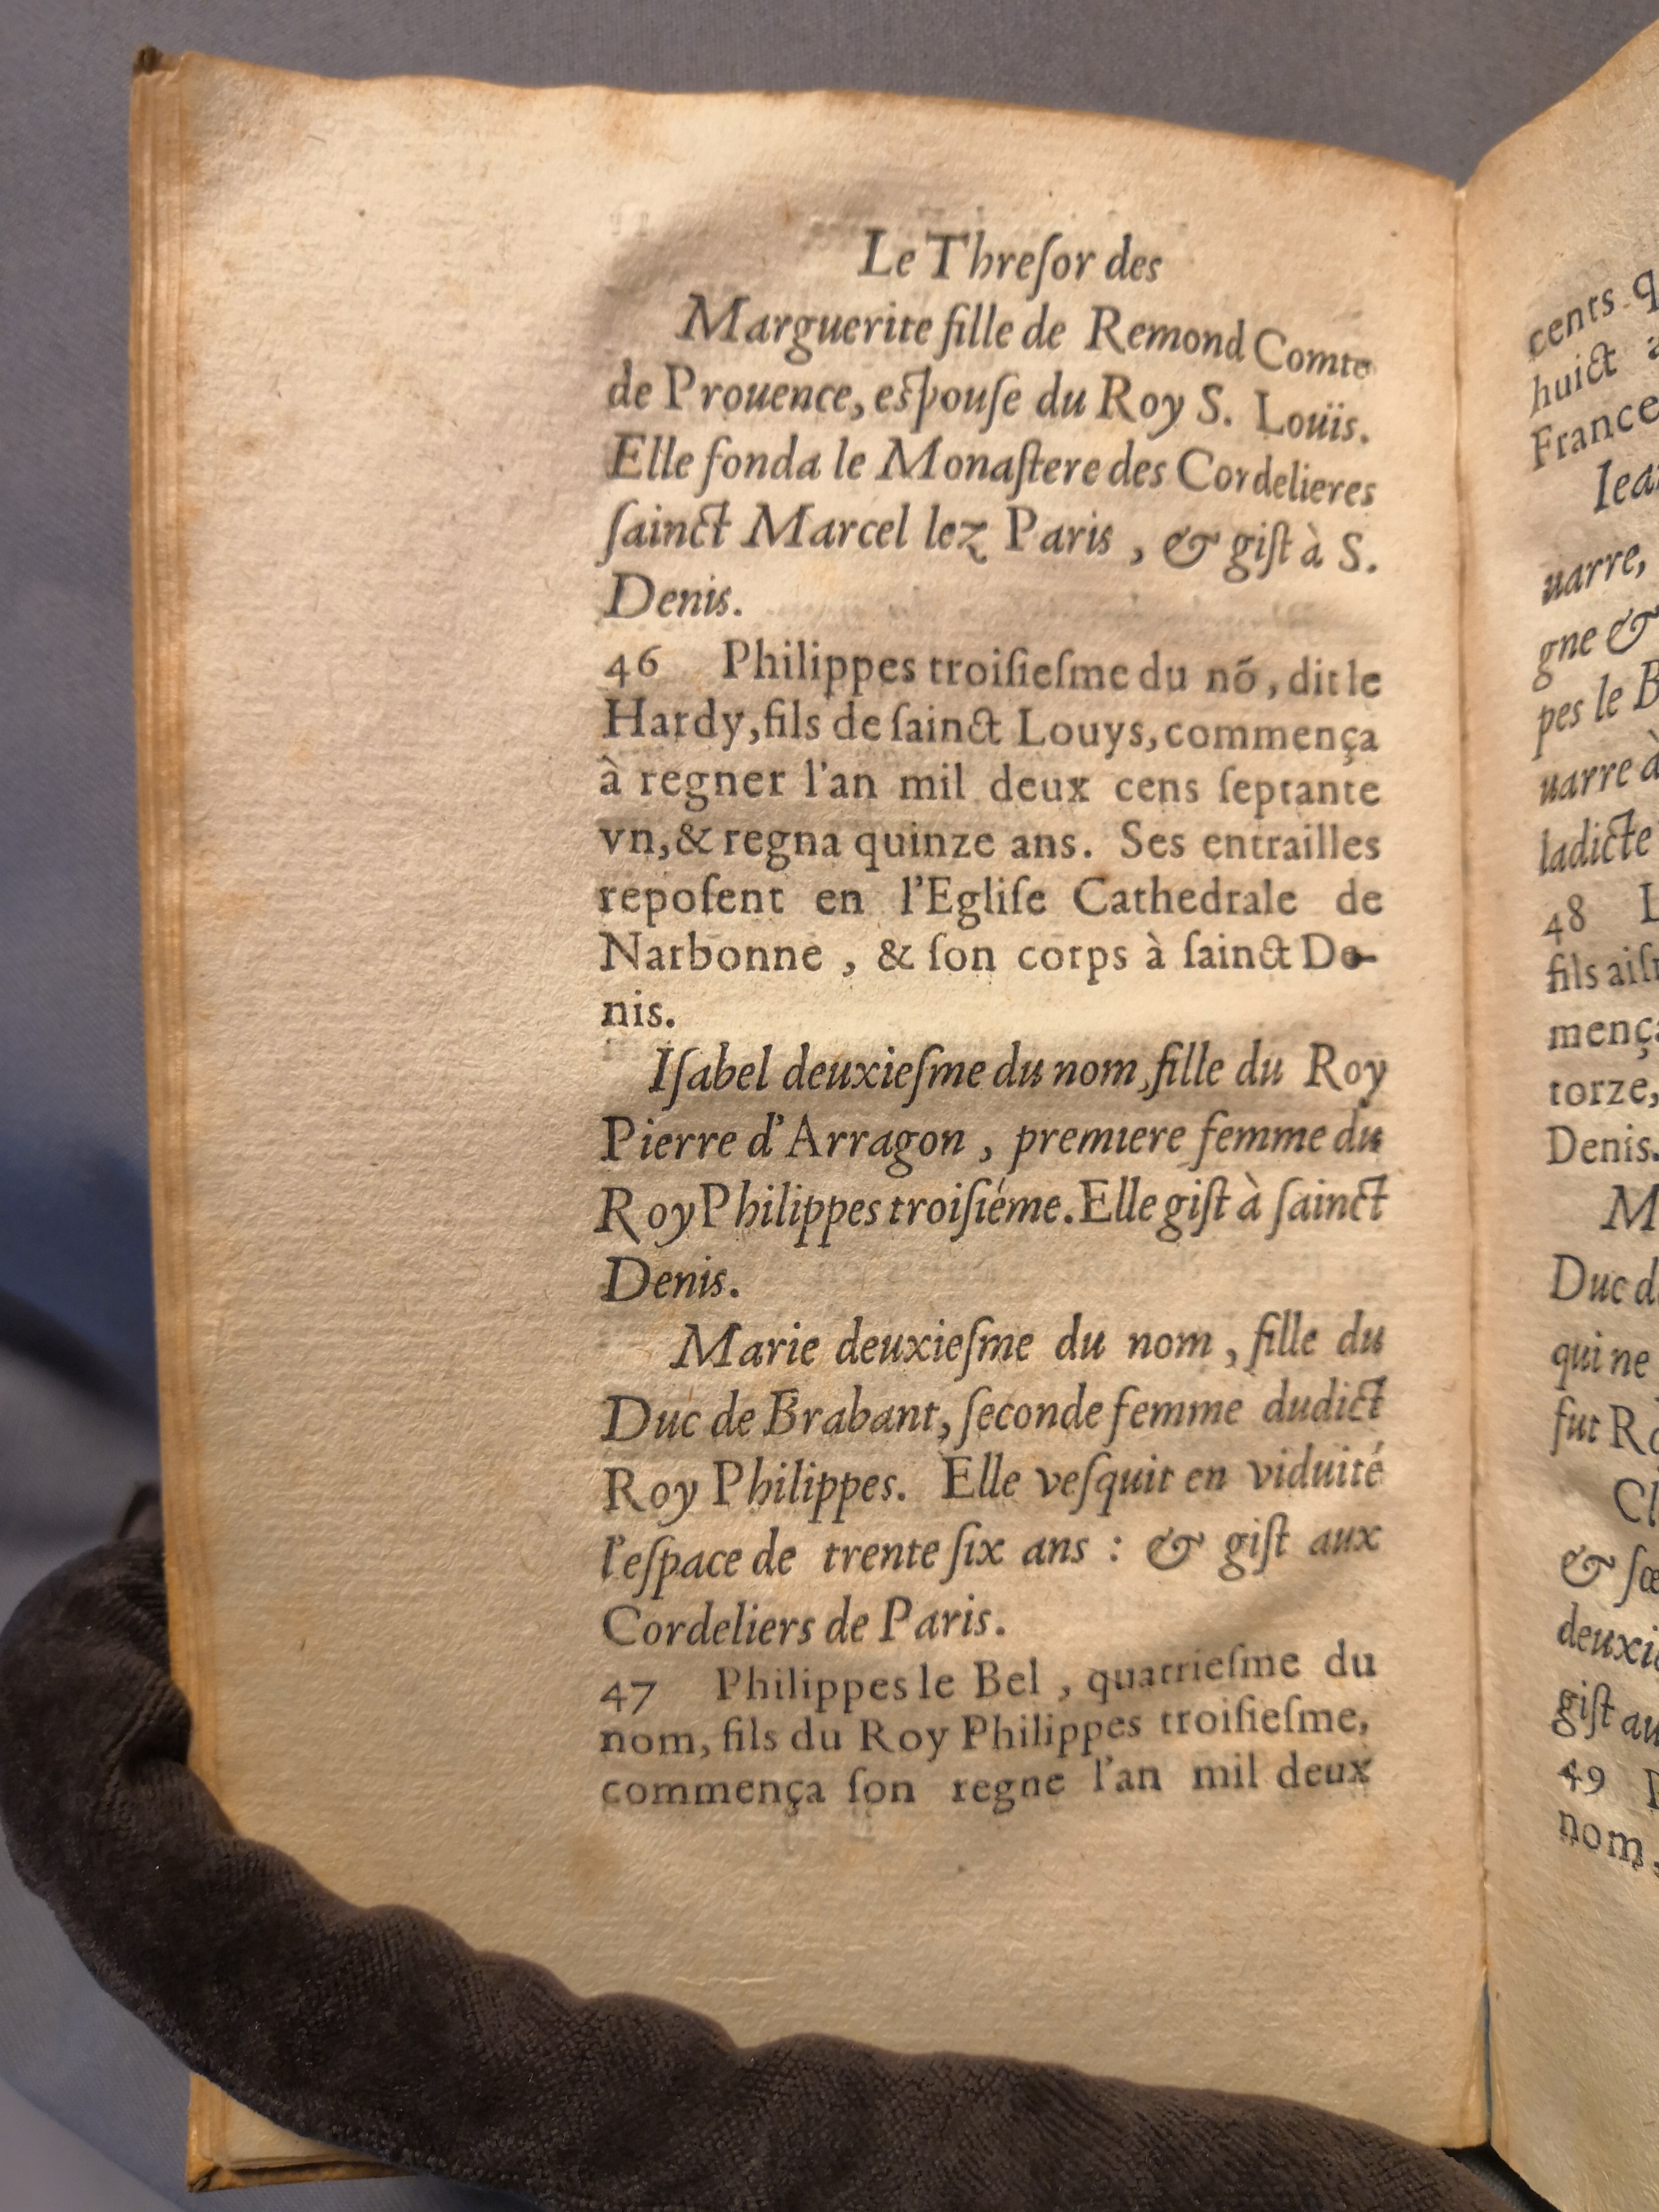 Le Threſor des
Marguerite fille de Remond Comte
de Prouence, eſpouſe du Roy S. Louïs.
Elle fonda le Monaſtere des Cordelieres
ſainct Marcel lez Paris , & giſt à S.
Denis.
46 Philippes troiſieſme du nō, dit le
Hardy, fils de ſainct Louys, commença
à regner l'an mil deux cens ſeptante
vn, & regna quinze ans. Ses entrailles
repoſent en l'Egliſe Cathedrale de
Narbonne , & ſon corps à ſainct De-
nis.
Iſabel deuxieſme du nom, fille du Roy
Pierre d'Arragon , premiere femme du
Roy Philippes troiſiéme. Elle giſt à ſainct
Denis.
Marie deuxieſme du nom , fille du
Duc de Brabant, ſeconde femme dudict
Roy Philippes. Elle veſquit en viduité
l'eſpace de trente ſix ans : & giſt aux
Cordeliers de Paris.
47 Philippes le Bel , quatrieſme du
nom, fils du Roy Philippes troiſieſme,
commença ſon regne l'an mil deux
cents
huict
France
uarre,
gne &
pes le B
uarre à
ladicte
48 L
fils aiſ
mença
torze,
Denis.
M
Duc d
qui ne
fut Ro
Cl
& ſœ
deuxi
giſt au
49
nom,